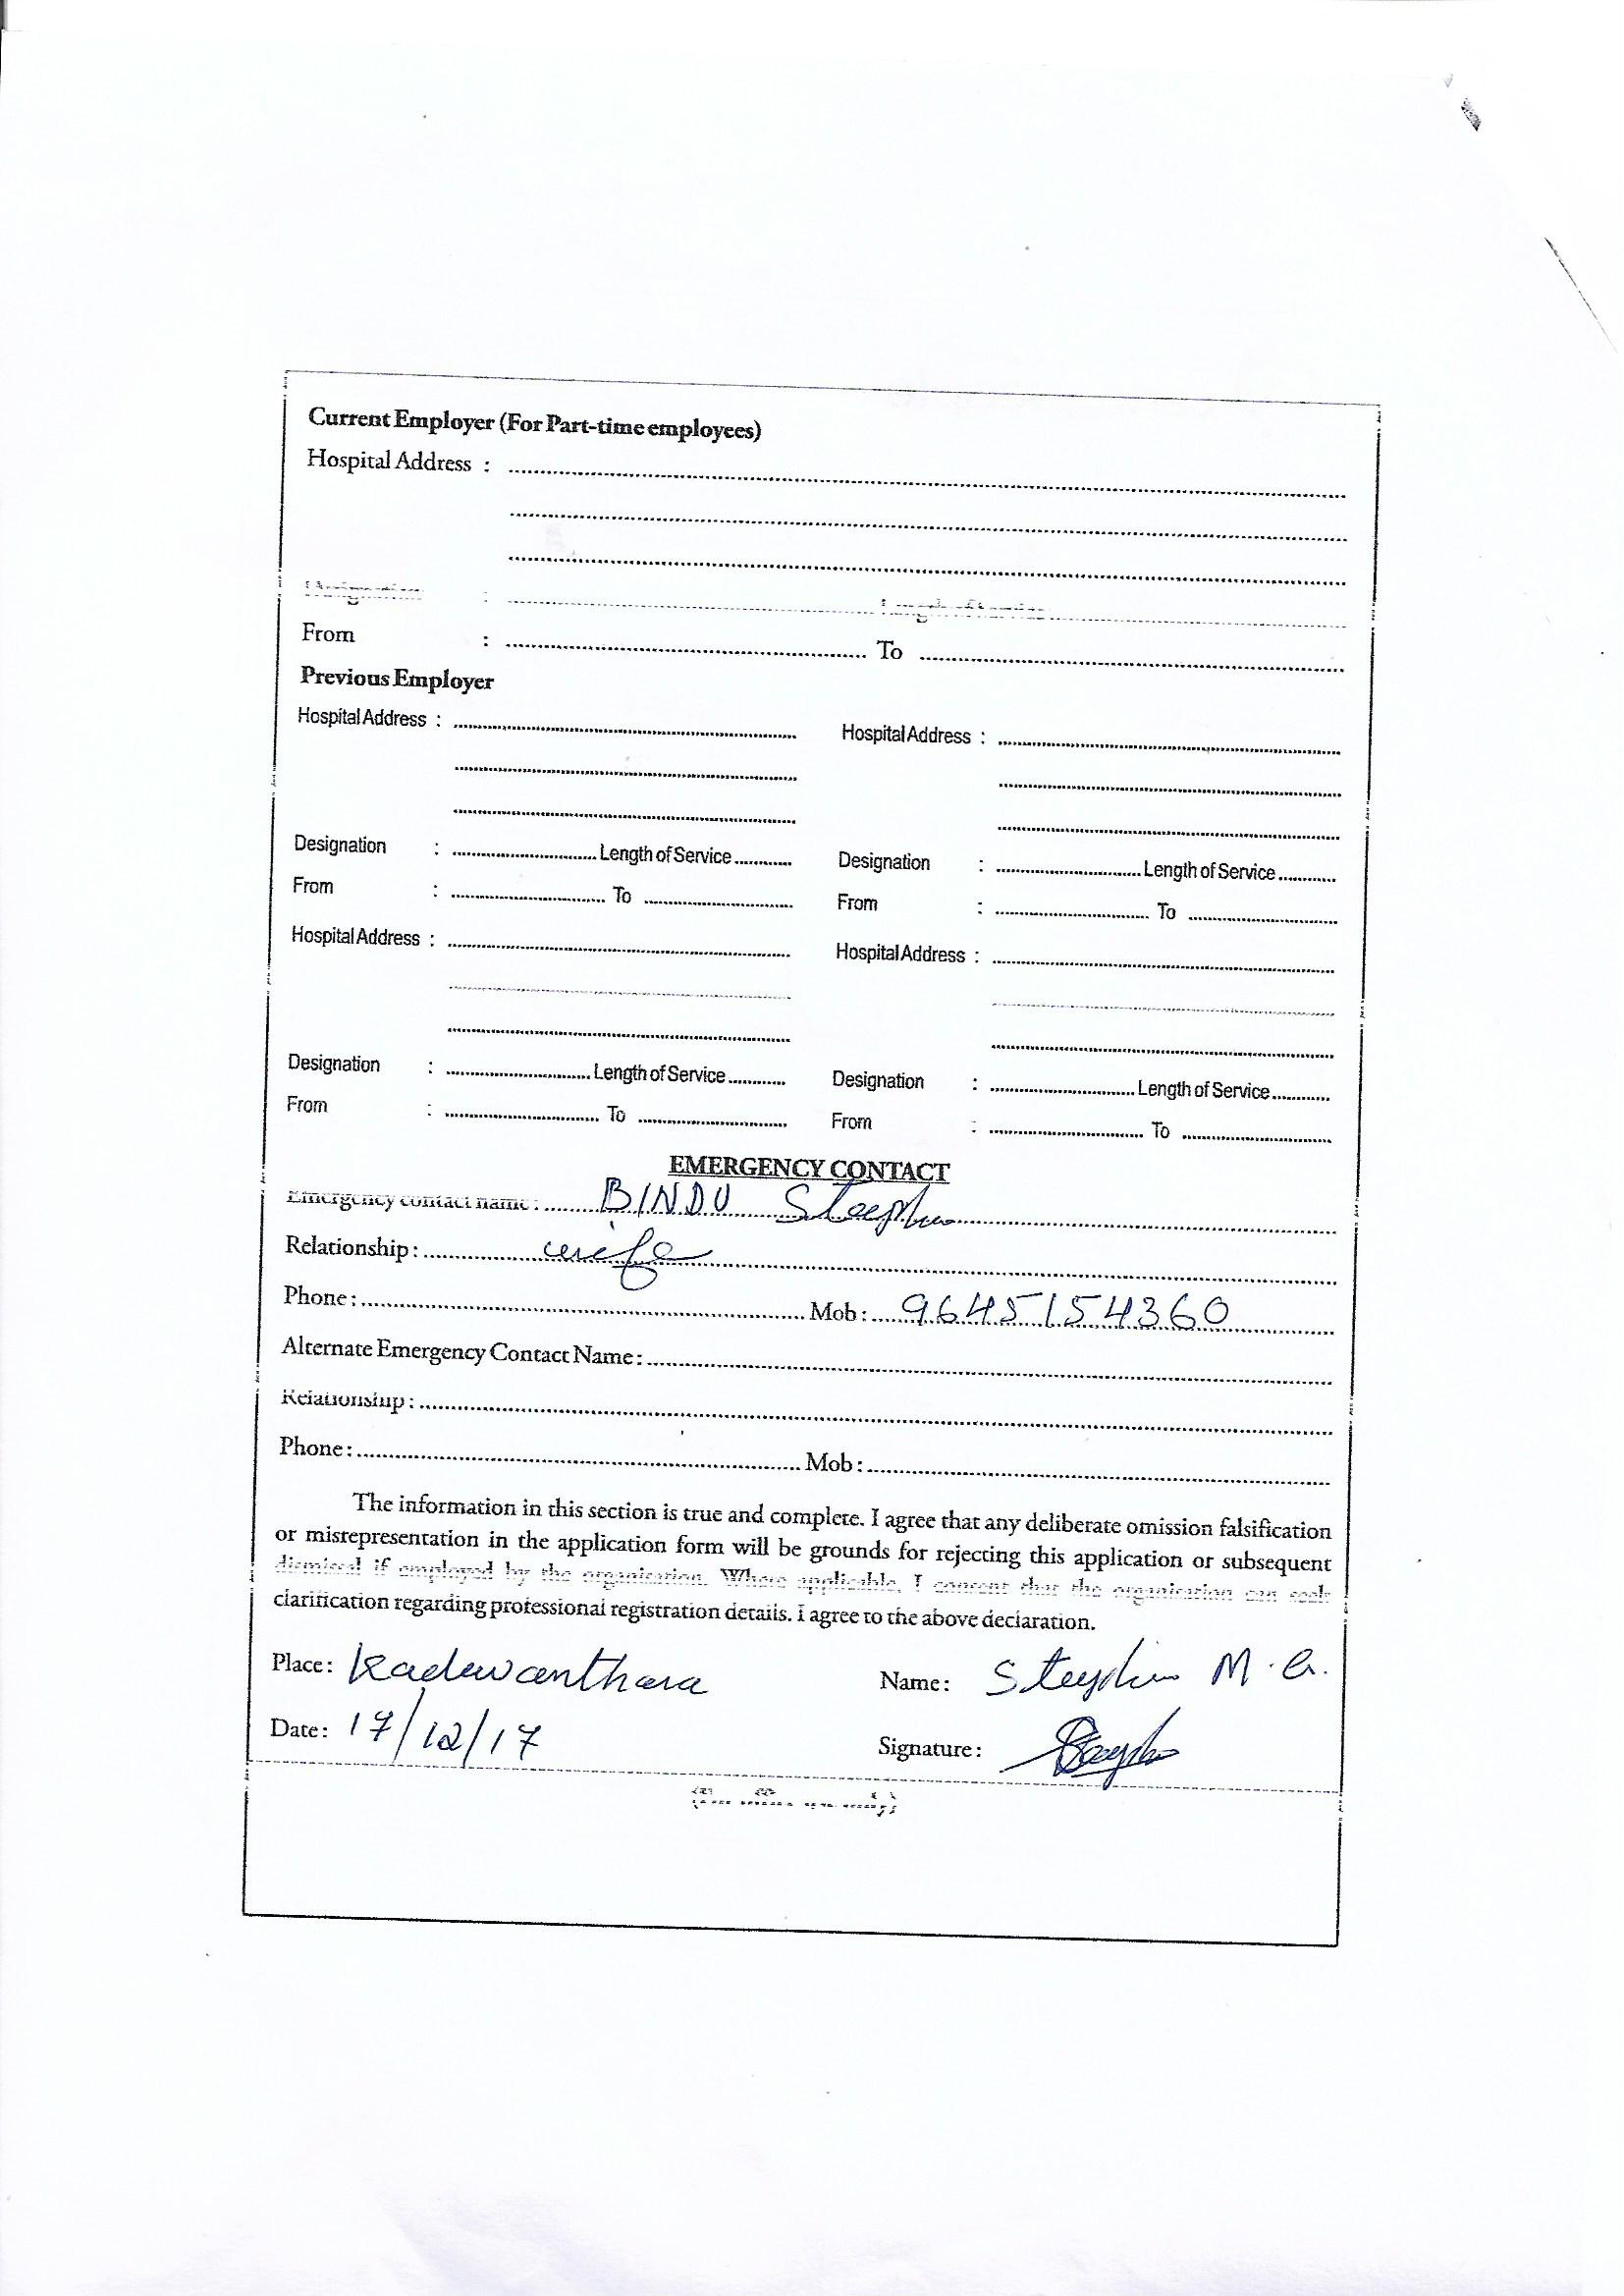 Current Employer (For Part-time employees)
Hospital Address :
From : To
Previous Employer
Hospital Address : Hospital Address :
Designation : Length of Service Designation : Length of Service
From : To From : To
Hospital Address : Hospital Address :
Designation : Length of Service Designation : Length of Service
From : To From : To
EMERGENCY CONTACT
Emergency contact name : BINDU Steephen
Relationship : wife
Phone : Mob : 9645154360
Alternate Emergency Contact Name :
Relationship :
Phone : Mob :
The information in this section is true and complete. I agree that any deliberate omission falsification
or misrepresentation in the application form will be grounds for rejecting this application or subsequent
dismissal if employed by the organisation. Where applicable, I consent that the organisation can seek
clarification regarding professional registration details. I agree to the above declaration.
Place : Kadavanthara Name : M. G.
Date : 17/12/17 Signature :